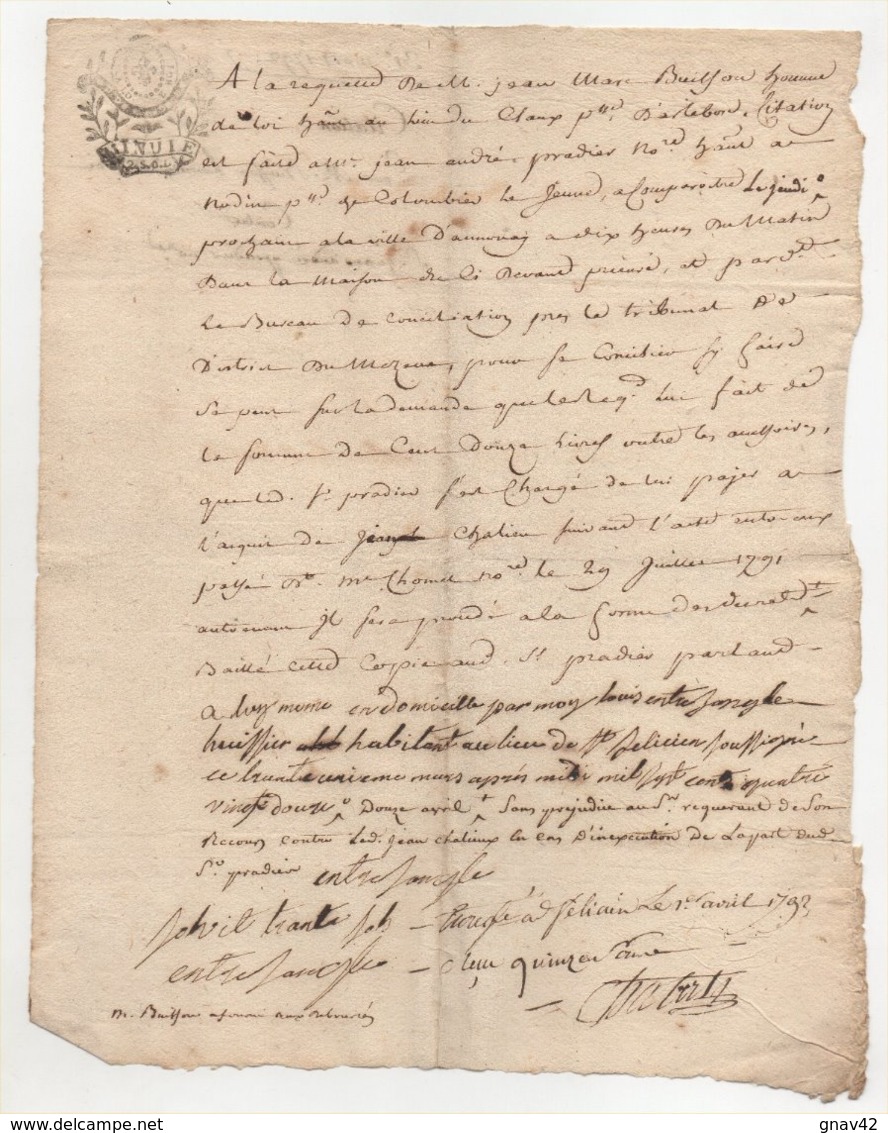 MINUTE
2. S. 6. D.
A la requette De M. jean Marc Buisson homme
de loi hant. au lieu du Claux psse. D'arlebosc, Citation
est faite a Mr. jean andré pradier nore. hant. a
nodin psse. de Colombier le Jeune, a Comparoitre Le jeudi
prochain a la ville D'annonay a Dix heures Du Matin
Dans la Maison du Ci Devant prieuré, et pard.
Le Bureau de Conciliation pres le tribunal De
District Du Mezenc, pour se Concilier sy faire
se peut sur la demande que le req. lui fait de
la somme de Cent Douze Livres outre les accessoires,
que led. Sr. pradier s'est Chargé de lui payer a
l'acquit de jean Chalieu suivant l'acte entr'eux
passé Mre Chomel nore. le 29 Juillet 1791
autrement Il sera procédé a la forme des decrets
Baillé cette Copie aud. Sr. pradier parlant
a luy meme en domicille par moy louis entressangle
huissier habitant au lieu de St. felicien soussigné
ce trante unieme mars après midi mil sept cent quatre
vingt douze Douze avril Sans prejudice au Sr. requerant de Son
Recours contre Led. jean chalieux En cas D'inexecution de La part dud.
Sr. pradier
entressangle
Solvit trante sols
entressangle
Enregé. a St. félicien Le 1er. avril 1792
Reçu quinze sous
m. Buisson a fourni aux debourcés
delcampe.net
gnav42